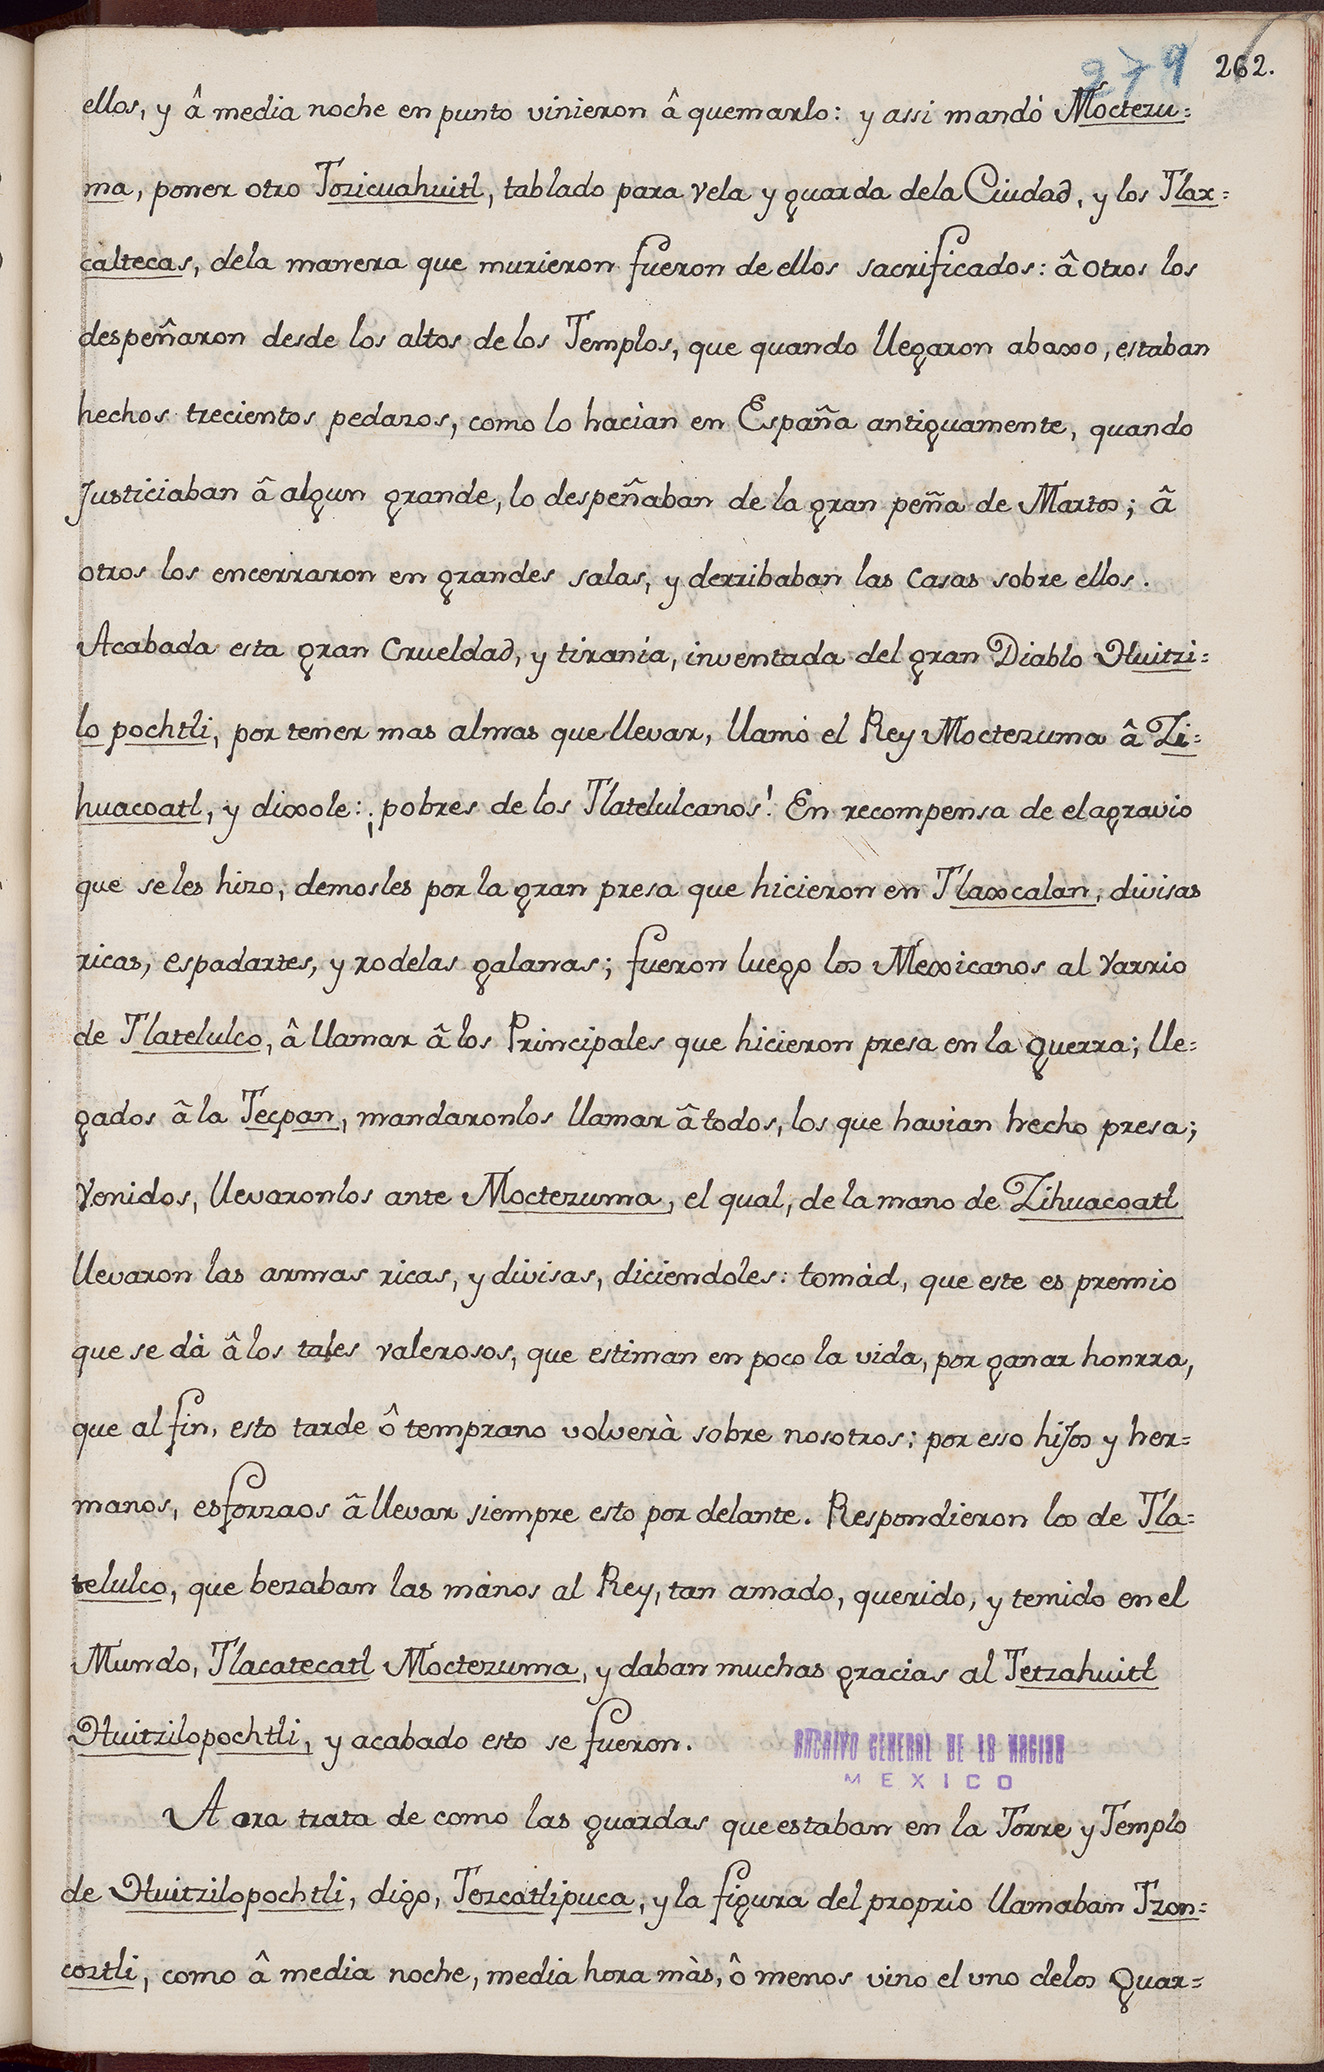 279 262.
ellos, y â media noche en punto vinieron â quemarlo: y assi mandò Moctezu=
ma, poner otro Tozicuahuitl, tablado para vela y guarda dela Ciudad, y los Tlax=
caltecas, dela manera que murieron fueron de ellos sacrificados: â otros los
despeñaron desde los altos de los Templos, que quando llegaron abaxo, estaban
hechos trecientos pedazos, como lo hacìan en España antiguamente, quando
Justiciaban â algun grande, lo despeñaban de la gran peña de Martos; â
otros los encerraron en grandes salas, y derribaban las Casas sobre ellos.
Acabada esta gran Crueldad, y tirania, inventada del gran Diablo Huitzi=
lo pochtli, por tener mas almas que llevar, llamò el Rey Moctezuma â Zi=
huacoatl, y dixole: ¡pobres de los Tlatelulcanos! En recompensa de el agravio
que se les hizo, demosles por la gran presa que hicieron en Tlaxcalan, divisas
ricas, espadartes, y rodelas galanas; fueron luego los Mexicanos al Varrio
de Tlatelulco, â llamar â los Principales que hicieron presa en la guerra; lle=
gados â la Tecpan, mandaronlos llamar â todos, los que havian hecho presa;
Venidos, llevaronlos ante Moctezuma, el qual, de la mano de Zihuacoatl
llevaron las armas ricas, y divisas, diciendoles: tomàd, que este es premio
que se dà â los tales valerosos, que estiman en poco la vida, por ganar honrra,
que al fin, esto tarde ô temprano volverà sobre nosotros; por esso hijos y her=
manos, esforzaos â llevar siempre esto por delante. Respondieron los de Tla=
telulco, que bezaban las manos al Rey, tan amado, querido, y temido en el
Mundo, Tlacatecatl Moctezuma, y daban muchas gracias al Tetzahuitl
Huitzilopochtli, y acabado esto se fueron.
ARCHIVO GENERAL DE LA NACION
MEXICO
Aora trata de como las guardas que estaban en la Torre y Templo
de Huitzilopochtli, digo, Tezcatlipuca, y la figura del proprio llamaban Tzon=
coztli, como â media noche, media hora màs, ô menos vino el uno delos Guar=